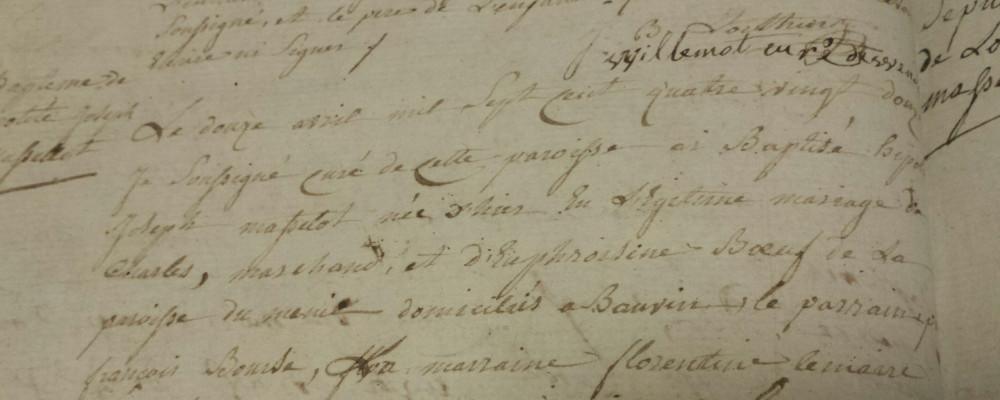 soussigné, et le pere de l'enfant
ni signer
villemot curé
Baptême de
Joseph
masselot
Le douze avril mil sept cent quatre vingt douze
Je soussigné curé de cette paroisse ai Baptisé hipo
Joseph masselot née d'hier en légitime mariage de
Charles, marchand, et d'Euphroisine Bœuf de La
paroisse du menil domiciliés a Bauvin, le parrain
françois Bourse, marraine florentine lemaire
depuis
de La
masse